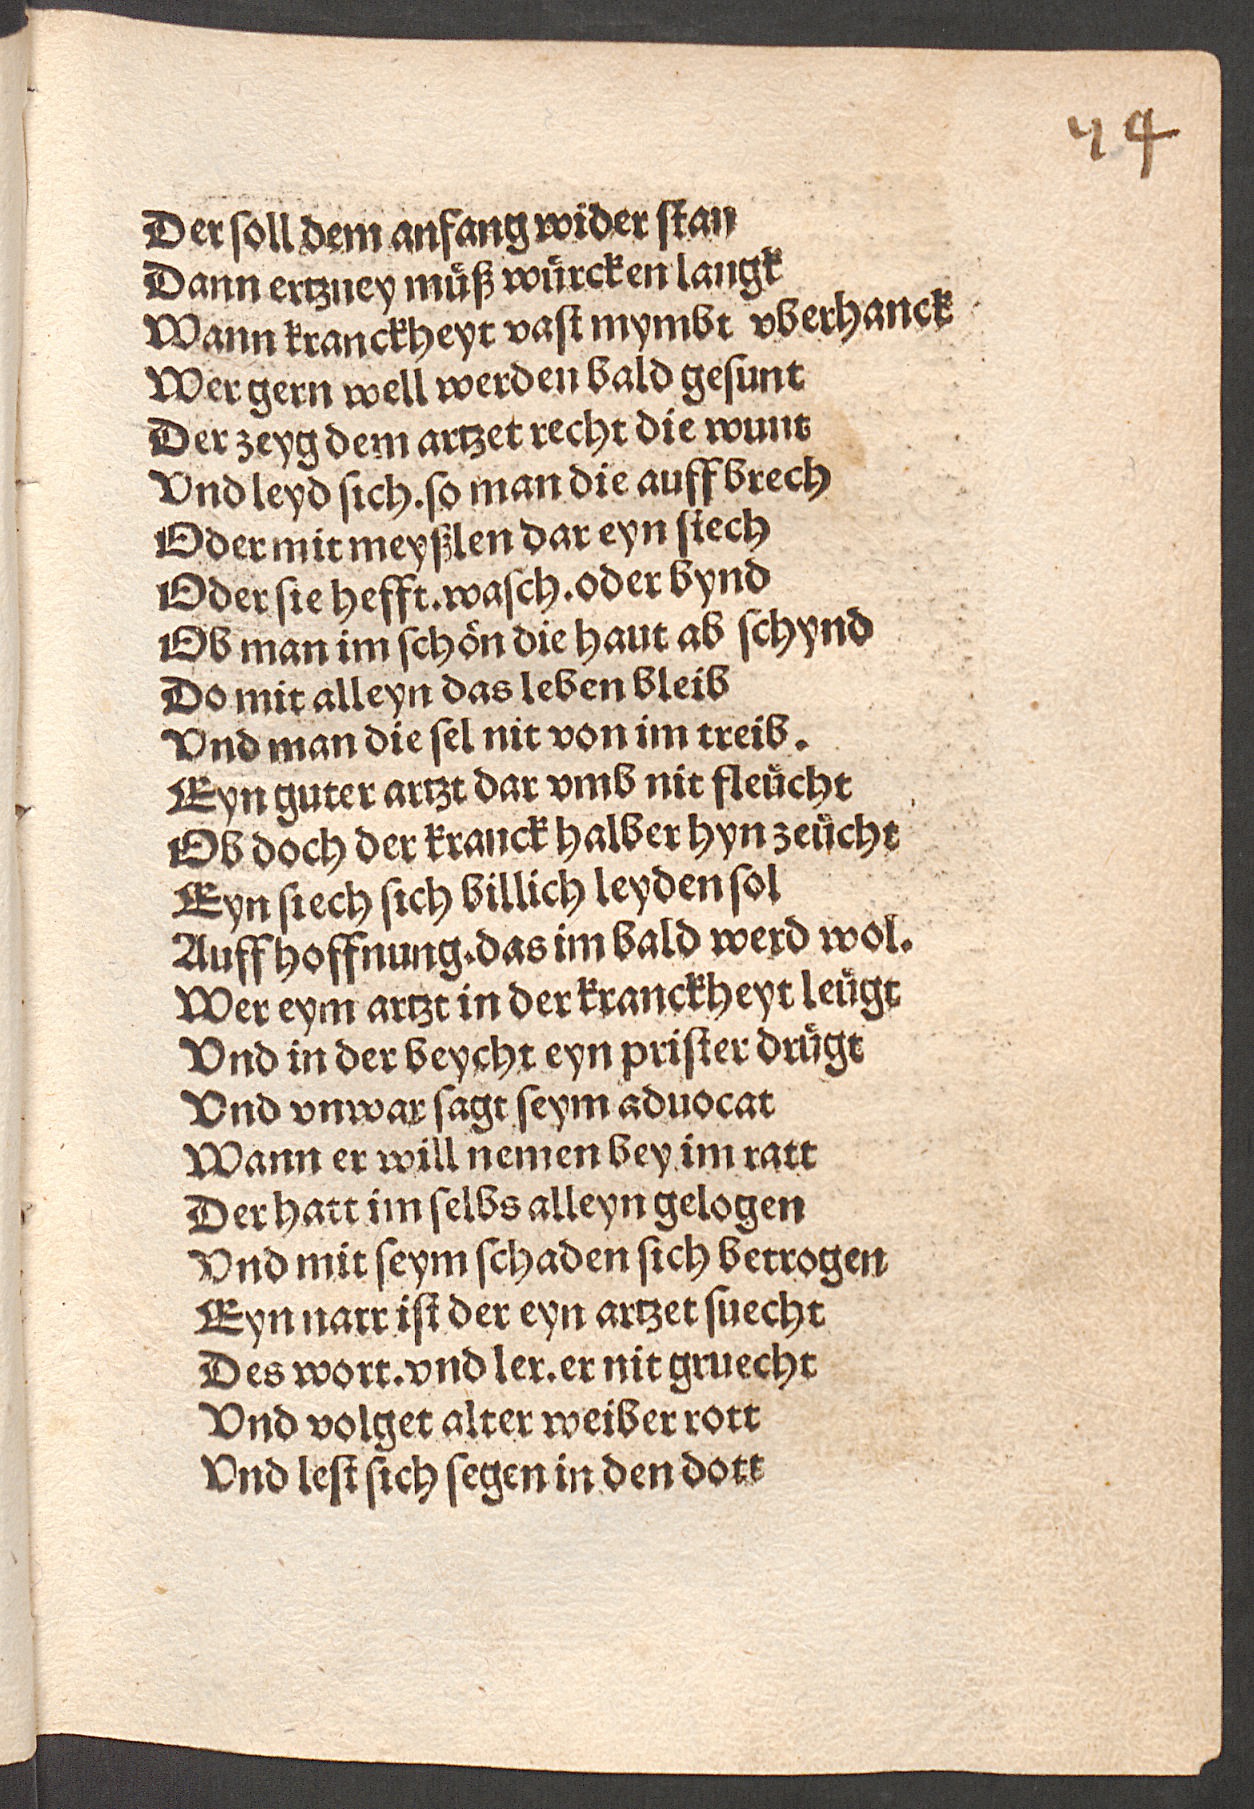 74
Der soll dem anfang wider stan
Dann ertzney müß würcken langk
Wann kranckheyt vast mymbt vberhanck
Wer gern well werden bald gesunt
Der zeyg dem artzet recht die wunt
Vnd leyd sich. so man die auff brech
Oder mit meyßlen dar eyn stech
Oder sie hefft. wasch. oder bynd
Ob man im schön die haut ab schynd
Do mit alleyn das leben bleib
Vnd man die sel nit von im treib.
Eyn guter artzt dar vmb nit fleücht
Ob doch der kranck halber hyn zeücht
Eyn siech sich billich leyden sol
Auff hoffnung. das im bald werd wol.
Wer eym artzt in der kranckheyt leügt
Vnd in der beycht eyn prister drügt
Vnd vnwar sagt seym aduocat
Wann er will nemen bey im ratt
Der hatt im selbs alleyn gelogen
Vnd mit seym schaden sich betrogen
Eyn narr ist der eyn artzet suecht
Des wort. vnd ler. er nit gruecht
Vnd volget alter weiber rott
Vnd lest sich segen in den dott